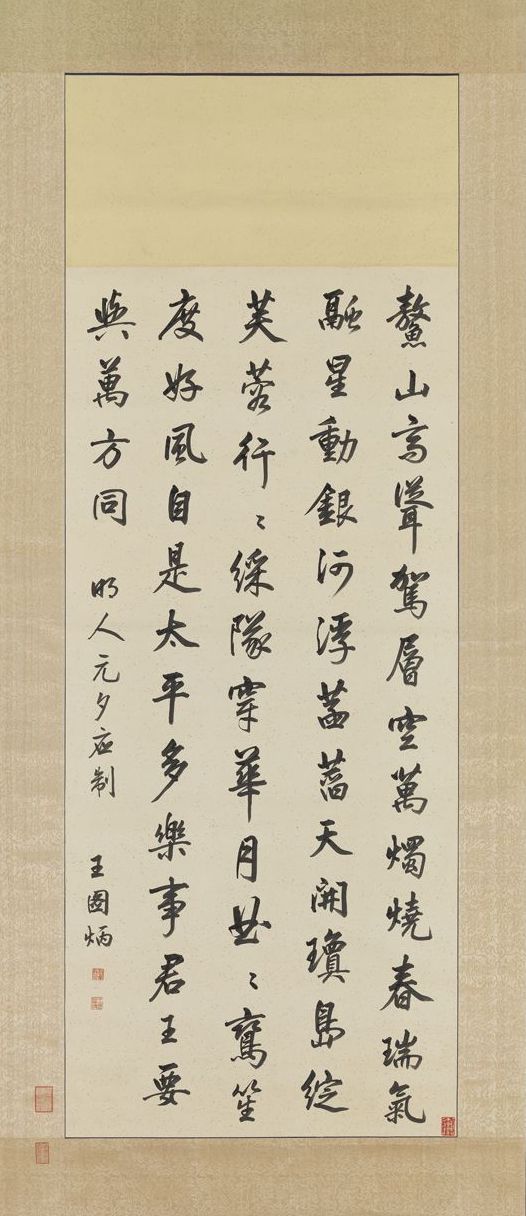 鰲山高聳駕層空萬燭燒春瑞氣
融星動銀河浮菡萏天開瓊島綻
芙蓉行〻綵隊穿華月曲〻鸞笙
度好風自是太平多樂事君王要
與萬方同
明人元夕应制
王圖炳